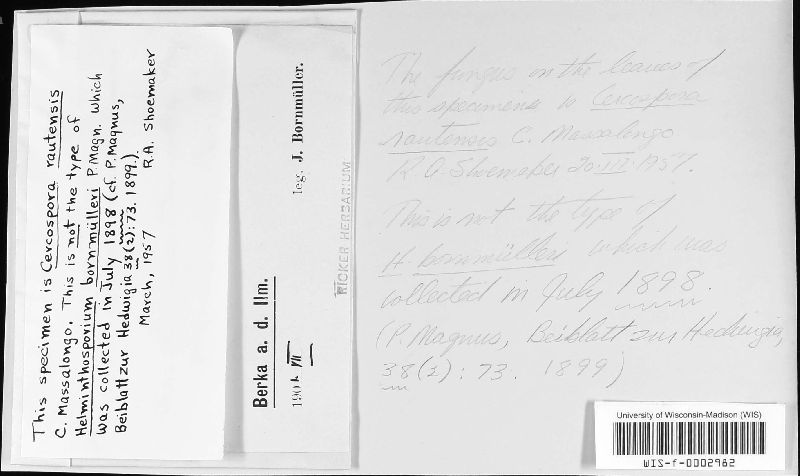 This specimen is Cercospora rautensis
C. Massalongo. This is not the type of
Helminthosporium bornmülleri P. Magn. which
was collected in July 1898 (cf. P. Magnus,
Beiblatt zur Hedwigia 38(2):73. 1899.)
March, 1957 R.A. Shoemaker
leg. J. Bornmüller.
Berka a. d. Ilm.
1904 VII
RICKER HERBARIUM
The fungus on the leaves of
this specimens is Cercospora
rautensis C. Massalongo
R. A. Shoemaker 20.III.1957.
This is not the type of
H. bornmülleri which was
collected in July 1898.
(P. Magnus, Beiblatt zur Hedwigia,
38(2): 73. 1899)
University of Wisconsin-Madison (WIS)
WIS-f-0002982